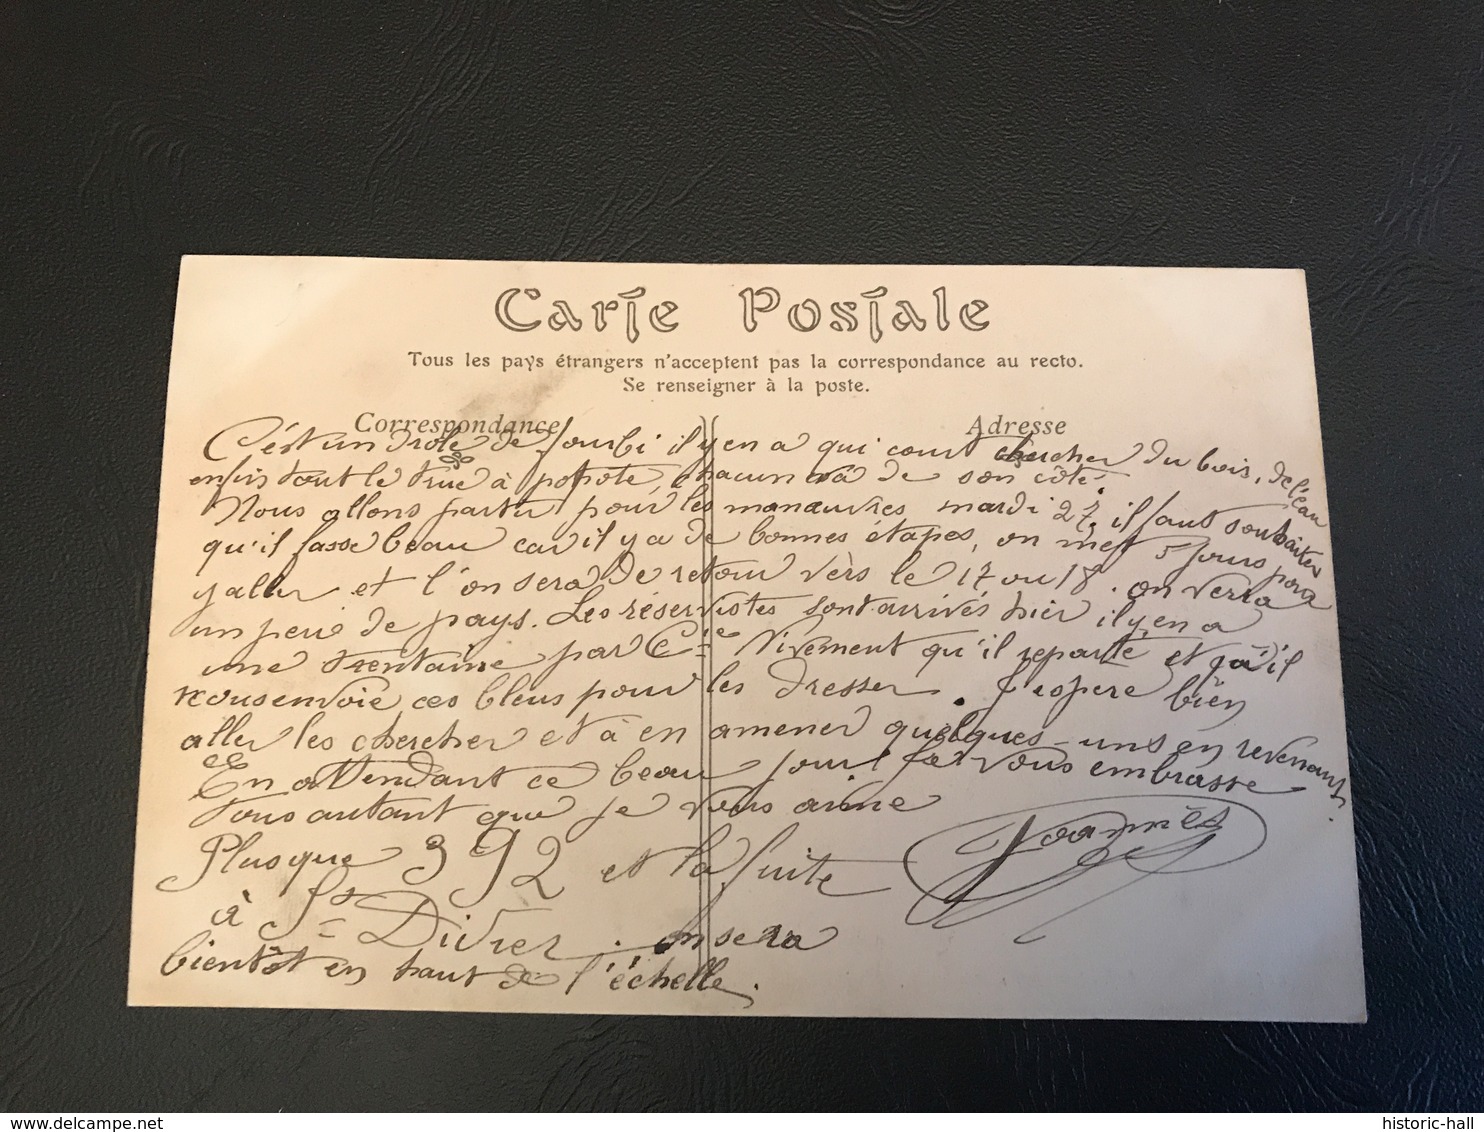 Carte Postale
Tous les pays étrangers n'acceptent pas la correspondance au recto.
Se renseigner à la poste.
Correspondance
Adresse
C'est un drole de fourbi il y en a qui court chercher du bois, de l'eau
enfin tout le truc à popote, chacun va de son côté.
Nous allons partir pour les manœuvres mardi 27, il faut souhaiter
qu'il fasse beau car il y a de bonnes étapes, on met 5 jours pour
y aller et l'on sera de retour vers le 17 ou 18. on verra
un peu de pays. Les réservistes sont arrivés hier il y en a
une trentaine par Cie Vivement qu'il reparte et qu'il
nous envoie ces bleus pour les dresser. J'espere bien
aller les chercher et à en amener quelques uns en revenant.
En attendant ce beau jour je vous embrasse
tous autant que je vous aime
Joannès
Plus que 392 et la fuite
à St Divrez. on sera
bientôt en haut de l'échelle.
www.delcampe.net
historic-hall